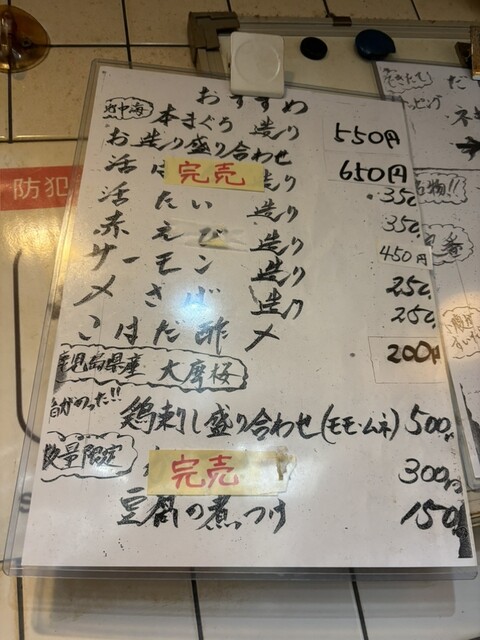 おすすめ
地中海 本まぐろ 造り 550円
お造り盛り合わせ 650円
活 は 完売 造り 350
活 たい 造り 350
赤 えび 造り 450円
サーモン 造り 250
〆 さば 造り 250
こはだ酢〆 200円
鹿児島県産 大摩桜
旨みがのった!!
鶏刺し盛り合わせ(モモ・ムネ) 500
数量限定
完売 300円
豆腐の煮つけ 150
防犯
できたて
名物!!